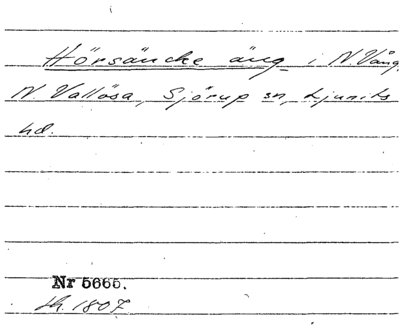 Hörsäncke äng i N. Vång,
N Vallösa, Sjörup sn, Ljunits
hd.
Nr 5665.
sk. 1807